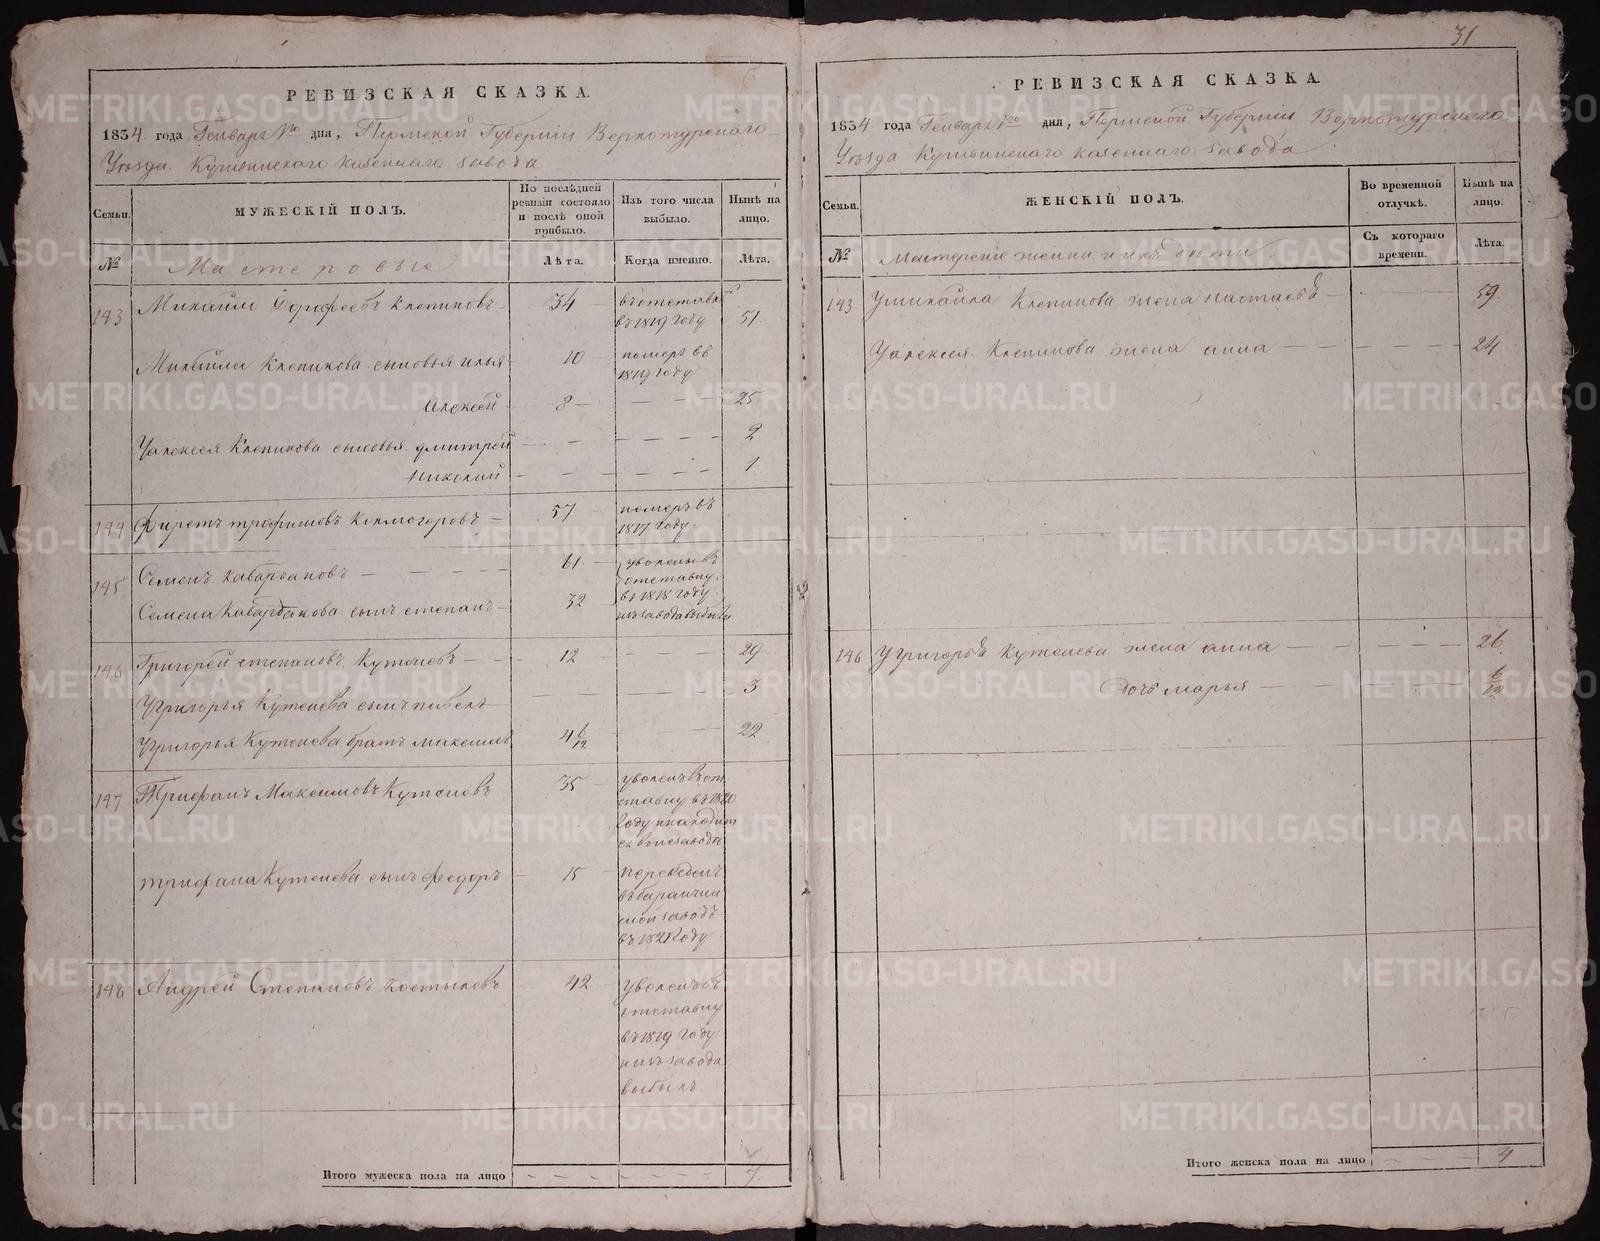 31
РЕВИЗСКАЯ СКАЗКА.
1834 года Генваря дня, Пермской Губернiи Верхотурскаго
Уѣзда Кушвинскаго казеннаго завода
Семьи.
МУЖЕСКIЙ ПОЛЪ.
По послѣдней ревизiи состояло и послѣ оной прибыло.
Изъ того числа выбыло.
Нынѣ на лицо.
№
Мастеровые
Лѣта.
Когда именно.
Лѣта.
143 Михайло Дорофеевъ Клепиковъ 34 въ отставкѣ
въ 1819 году 51
Михайла Клепикова сыновья Илья 10 померъ въ
1819 году
Алексей 8 25
У Алексея Клепикова сыновья Дмитрей 2
Николай 1
144 трофимовъ Колмогоровъ 57 померъ въ
1817 году
145 Семенъ Кабардановъ 61 уволены въ
отставку
Семена сынъ степанъ 32 въ 1818 году
изъ завода выбыли
146 Григорей степановъ Кутеневъ 12 29
У Григорья Кутенева сынъ павелъ 3
У Григорья Кутенева братъ максимъ 4 6/12 22
147 Трифанъ Максимовъ Кутеневъ 35 уволенъ въ от
ставку въ 1820
году находит
ся
трифана Кутенева сынъ федоръ 15 переведенъ
въ баранчин
ской заводъ
въ 1821 году
148 Андрей Степановъ костылевъ 42 уволенъ въ
отставку
въ 1819 году
и изъ завода
выбылъ
Итого мужеска пола на лицо 7
РЕВИЗСКАЯ СКАЗКА.
1834 года Генваря дня, Пермской Губернiи Верхотурскаго
Уѣзда Кушвинскаго казеннаго завода
Семьи.
ЖЕНСКIЙ ПОЛЪ.
Во временной отлучкѣ.
Нынѣ на лицо.
№
Мастерскiе женки и ихъ дети
Съ котораго времени.
Лѣта.
143 У михайла Клепикова жена настасья 59
У алексея Клепикова жена анна 24
146 У григорья Кутенева жена анна 26
дочь марья 6/12
Итого женска пола на лицо 4
METRIKI.GASO-URAL.RU